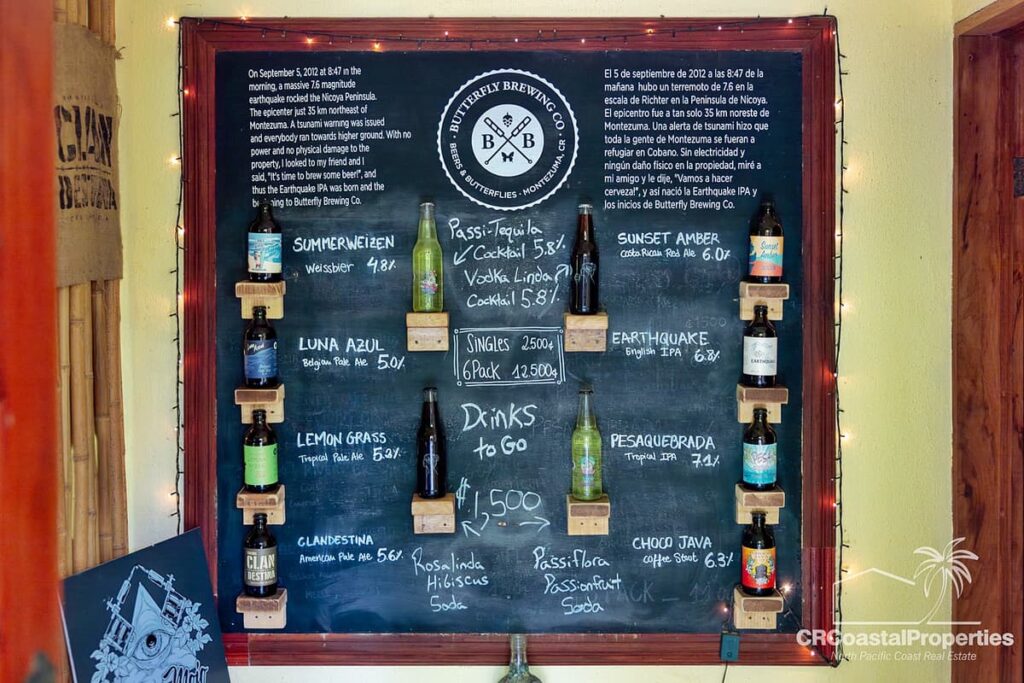 On September 5, 2012 at 8:47 in the
morning, a massive 7.6 magnitude
earthquake rocked the Nicoya Peninsula.
The epicenter just 35 km northeast of
Montezuma. A tsunami warning was issued
and everybody ran towards higher ground. With no
power and no physical damage to the
property, I looked to my friend and I
said, "It's time to brew some beer!", and
thus the Earthquake IPA was born and the
to Butterfly Brewing Co.
BUTTERFLY BREWING CO.
B B
BEERS & BUTTERFLIES · MONTEZUMA, CR
El 5 de septiembre de 2012 a las 8:47 de la
mañana hubo un terremoto de 7.6 en la
escala de Richter en la Península de Nicoya.
El epicentro fue a tan solo 35 km noreste de
Montezuma. Una alerta de tsunami hizo que
toda la gente de Montezuma se fueran a
refugiar en Cobano. Sin electricidad y
ningún daño físico en la propiedad, miré a
mi amigo y le dije, "Vamos a hacer
cerveza!", y así nació la Earthquake IPA y
los inicios de Butterfly Brewing Co.
SUMMERWEIZEN
Weissbier 4.8%
LUNA AZUL
Belgian Pale Ale 5.0%
LEMON GRASS
Tropical Pale Ale 5.2%
CLANDESTINA
American Pale Ale 5.6%
Passi-Tequila
Cocktail 5.8%
Vodka Linda
Cocktail 5.8%
SINGLES 2500¢
6 Pack 12.500¢
Drinks
to Go
1,500
Rosalinda
Hibiscus
Soda
Passiflora
Passionfruit
Soda
SUNSET AMBER
Costa Rican Red Ale 6.0%
EARTHQUAKE
English IPA 6.8%
PESAQUEBRADA
Tropical IPA 7.1%
CHOCO JAVA
Coffee Stout 6.3%
CLAN
DESTINA
CLAN
DESTINA
Sunset
Amber
EARTHQUAKE
CRCoastalProperties
North Pacific Coast Real Estate